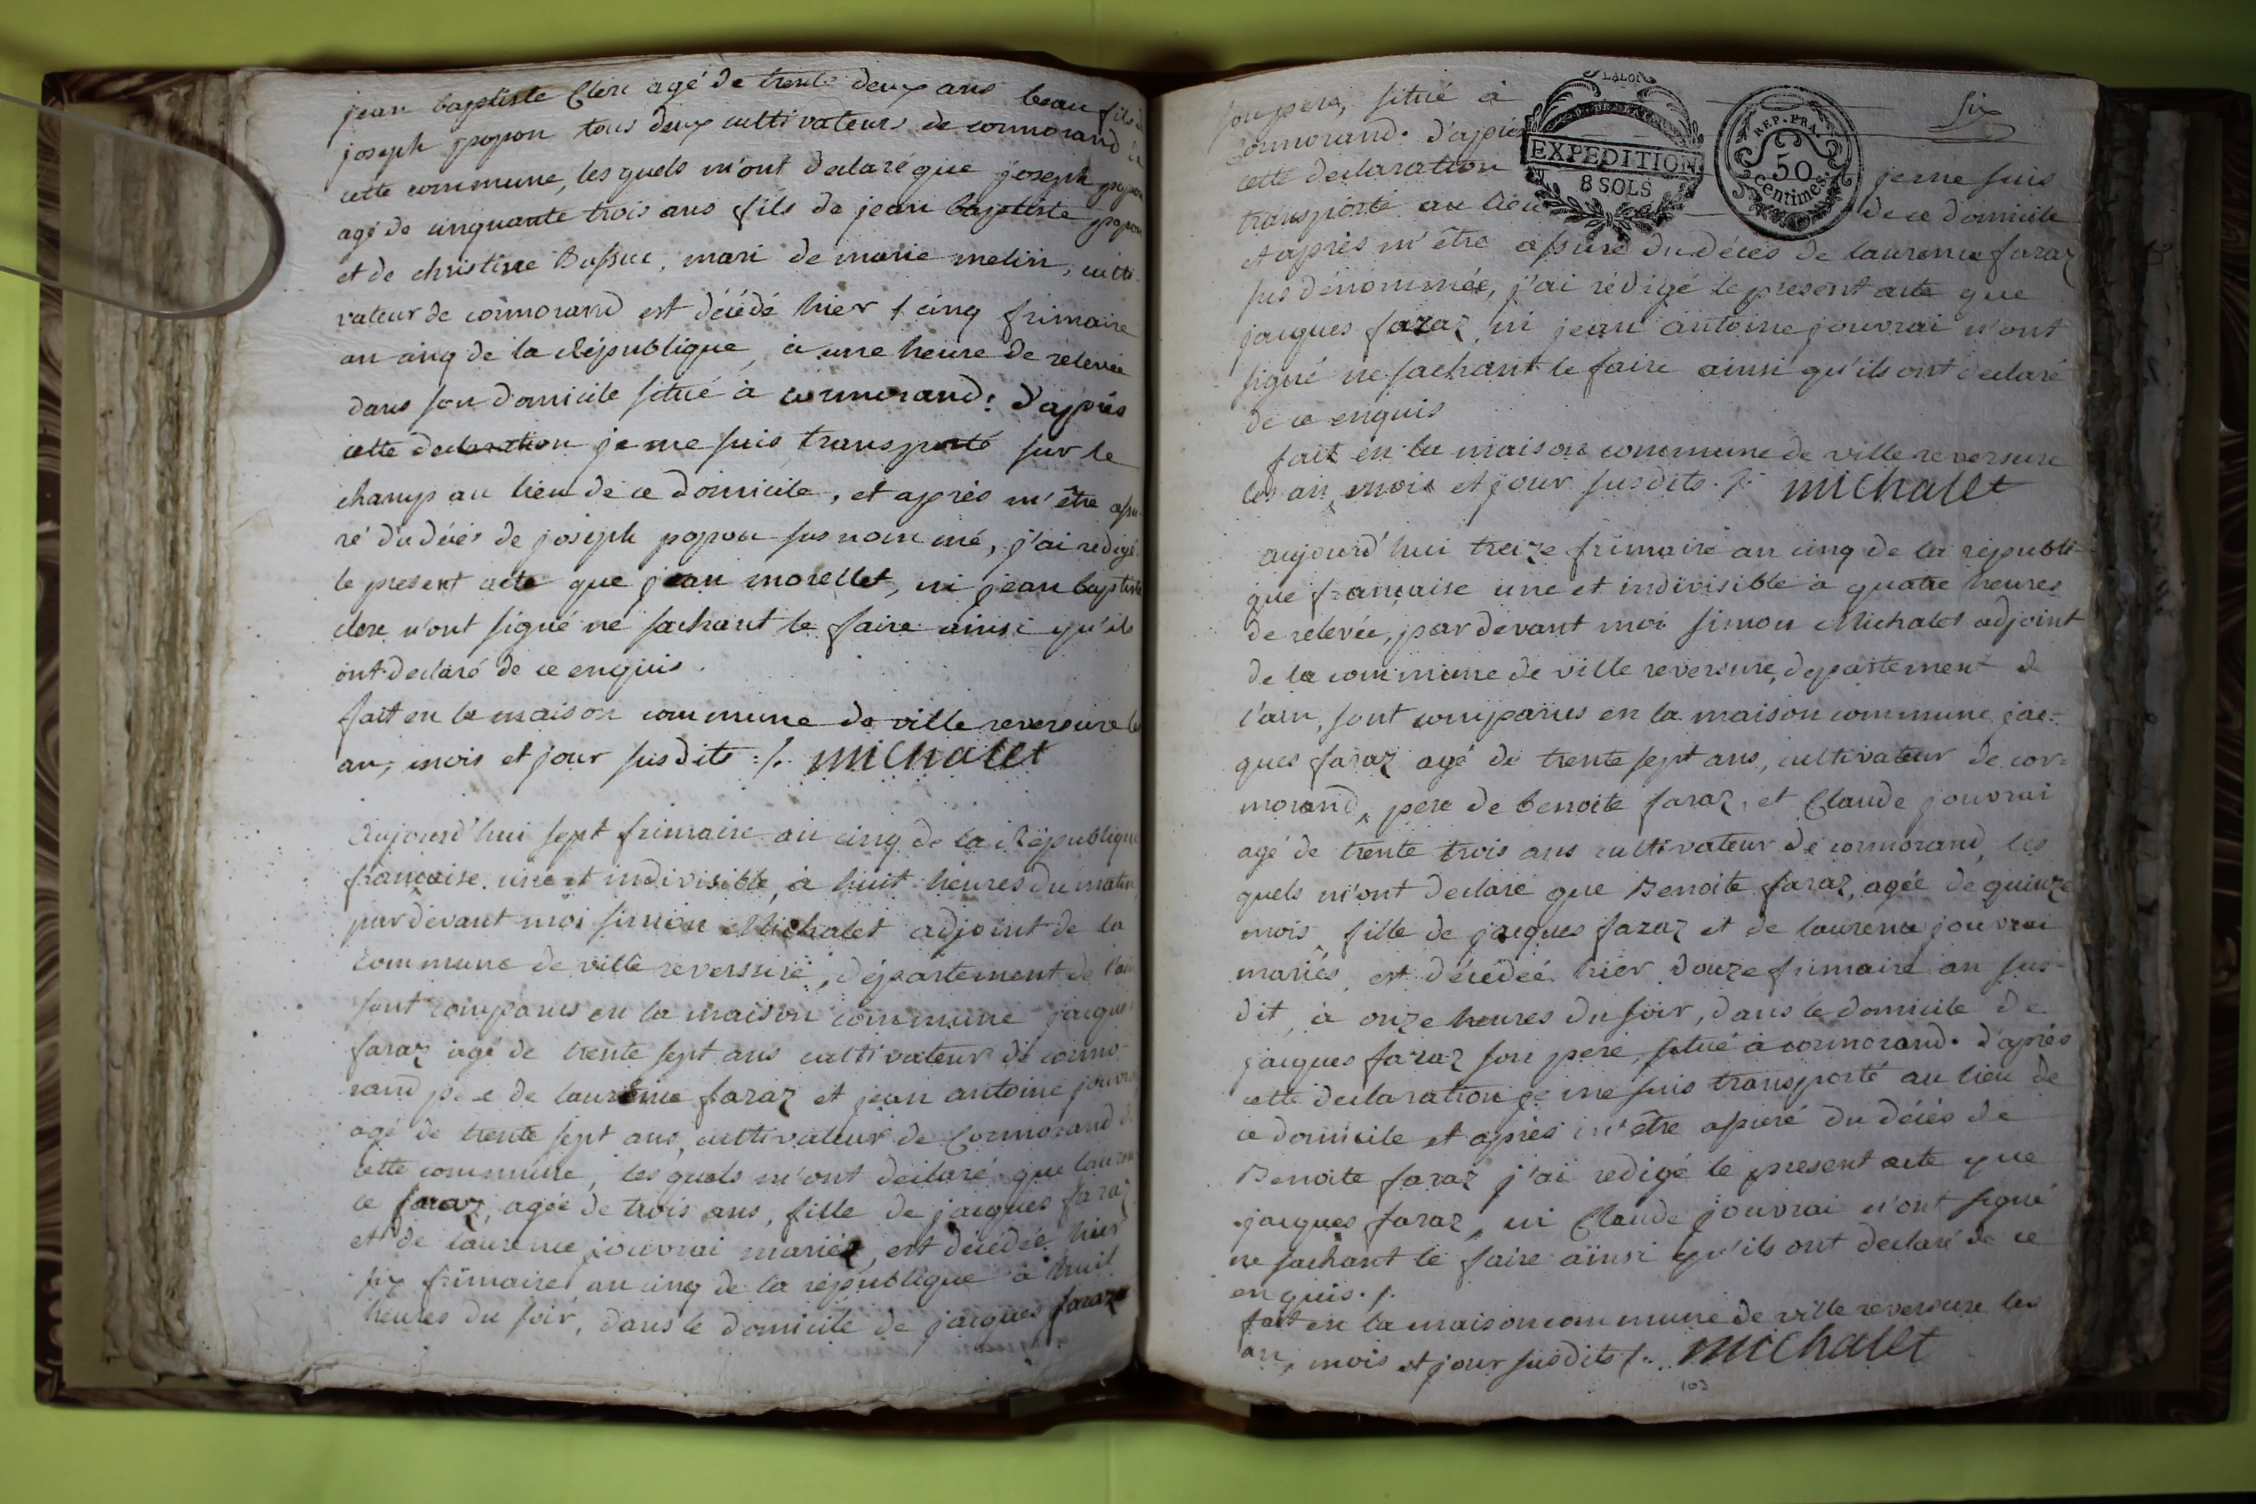 jean baptiste Clerc agé de trente deux ans beau fils de
joseph popon tous deux cultivateurs de cormorand de
cette commune, les quels m'ont declaré que joseph popon
agé de cinquante trois ans fils de jean baptiste popon
et de christine Bussuc, mari de marie melin, culti-
vateur de cormorand est décédé hier cinq frimaire
an cinq de la République, a une heure de relevée
dans son domicile situé à cormorand: d'après
cette declaration je me suis transporté sur le
champ au lieu de ce domicile, et après m'être assu-
ré du décés de joseph popon sus nommé, j'ai redigé
le present acte que jean morellet, ni jean baptiste
clerc n'ont signé ne sachant le faire ainsi qu'ils
ont declaré de ce enquis.
fait en la maison commune de ville reversure les
an, mois et jour susdits :/. michalet
Aujourd'hui sept frimaire an cinq de la République
française une et indivisible, à huit heures du matin
par devant moi simon Michalet adjoint de la
commune de ville reversure, département de l'ain
sont comparus en la maison commune jacques
faraz agé de trente sept ans cultivateur de cormo-
rand pere de laurence faraz et jean antoine jouvrai
agé de trente sept ans, cultivateur de Cormorand de
cette commune, les quels m'ont declaré que lauren-
ce faraz, agée de trois ans, fille de jacques faraz
et de laurence jouvrai mariés, est décédée hier
six frimaire an cinq de la république à huit
heures du soir, dans le domicile de jacques faraz
son pere, situé à
Cormorand. d'après
cette declaration je me suis
transporté au lieu de ce domicile
et après m'être assuré du décès de laurence faraz
sus dénommée, j'ai rédigé le present acte que
jacques faraz, ni jean antoine jouvrai n'ont
signé ne sachant le faire ainsi qu'ils ont declaré
de ce enquis
fait en la maison commune de ville reversure
les an, mois et jour susdits. /. michalet
six
LA LOI
EXPEDITION
8 SOLS
REP. FRA.
50
Centimes.
aujourd'hui treize frimaire an cinq de la républi-
que française une et indivisible à quatre heures
de relevée, par devant moi simon Michalet adjoint
de la commune de ville reversure, departement de
l'ain, sont comparus en la maison commune jac-
ques faraz agé de trente sept ans, cultivateur de cor-
morand, pere de benoite faraz, et Claude jouvrai
agé de trente trois ans cultivateur de cormorand, les
quels m'ont declaré que Benoite faraz, agée de quinze
mois, fille de jacques faraz et de laurence jouvrai
mariés, est décédée hier douze frimaire an sus-
dit, à onze heures du soir, dans le domicile de
jacques faraz son pere, situé à cormorand. d'après
cette declaration je me suis transporté au lieu de
ce domicile et après m'être assuré du décès de
Benoite faraz j'ai redigé le present acte que
jacques faraz, ni Claude jouvrai n'ont signé
ne sachant le faire ainsi qu'ils ont declaré de ce
enquis. /.
fait en la maison commune de ville reversure les
an, mois et jour susdits /. michalet
103